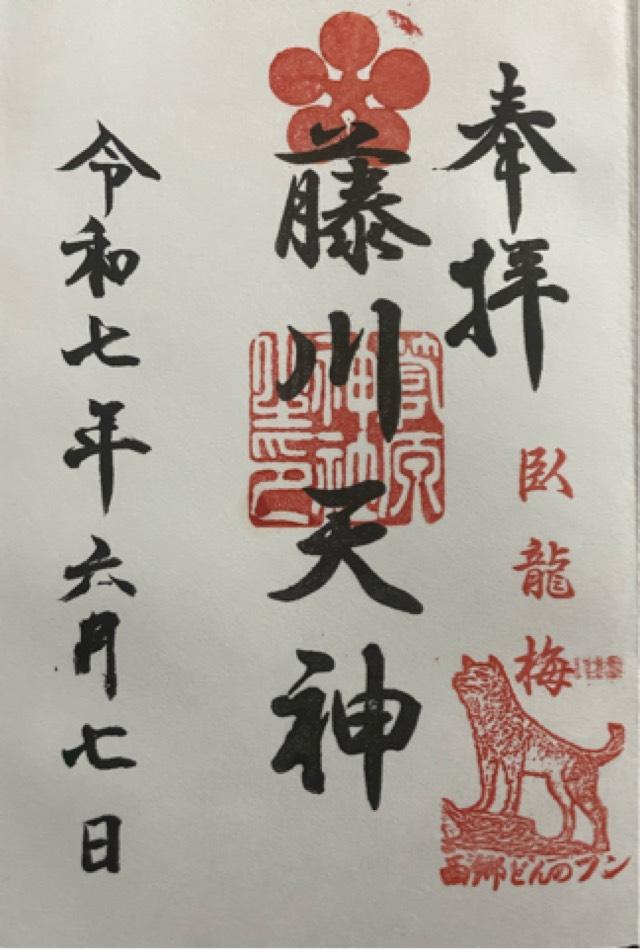 奉拝
臥龍梅
西郷どんのツン
藤川天神
菅原神社璽印
令和七年六月七日